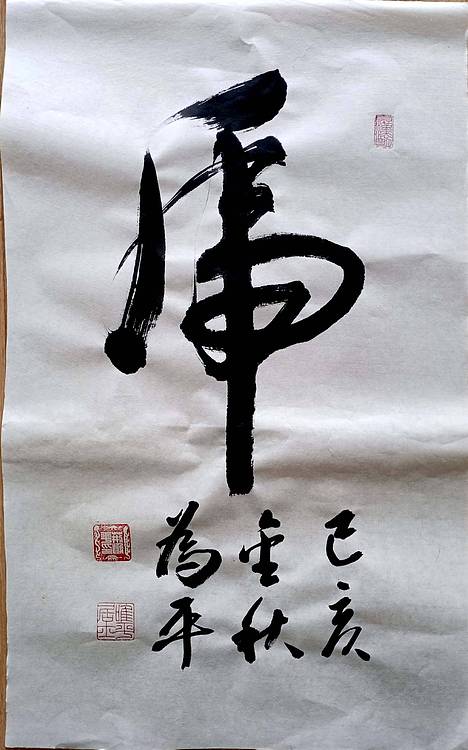 虎
己亥
金秋
為平